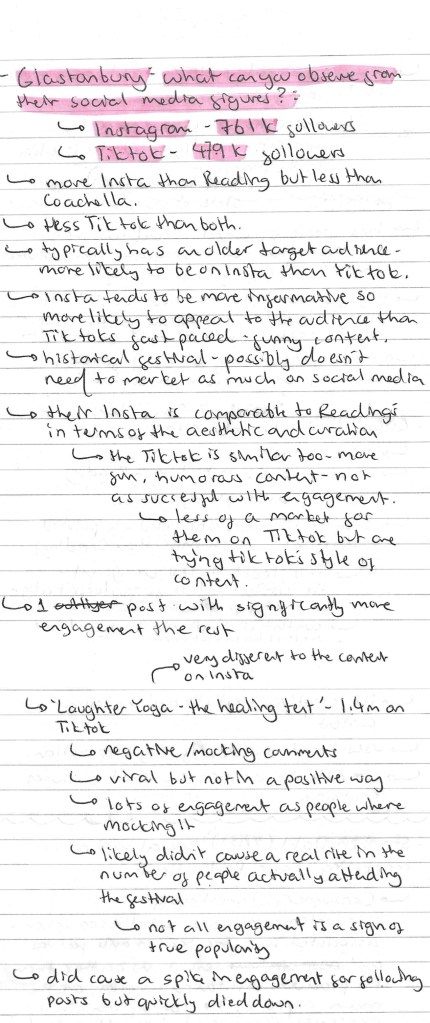 - Glastonbury - what can you observe from
their social media figures? :-
↳ Instagram - 761k followers
↳ Tiktok - 479k followers
↳ more Insta than Reading but less than
Coachella.
↳ less Tiktok than both.
↳ typically has an older target audience -
more likely to be on Insta than tiktok.
↳ Insta tends to be more informative so
more likely to appeal to the audience than
Tiktoks fast paced - funny content.
↳ historical festival - possibly doesn't
need to market as much on social media
↳ their Insta is comparable to Readings
in terms of the aesthetic and curation
↳ the Tiktok is similar too - more
fun, humorous content - not
as succesful with engagement.
↳ less of a market for
them on Tiktok but are
trying tiktok's style of
content.
↳ 1 post with significantly more
engagement the rest
very different to the content
on Insta
↳ 'Laughter Yoga - the healing tent' - 1.4m on
Tiktok
↳ negative/mocking comments
↳ viral but not in a positive way
↳ lots of engagement as people where
mocking it
↳ likely didn't cause a real rite in the
number of people actually attending
the festival
↳ not all engagement is a sign of
true popularity
↳ did cause a spike in engagement for following
posts but quickly died down.